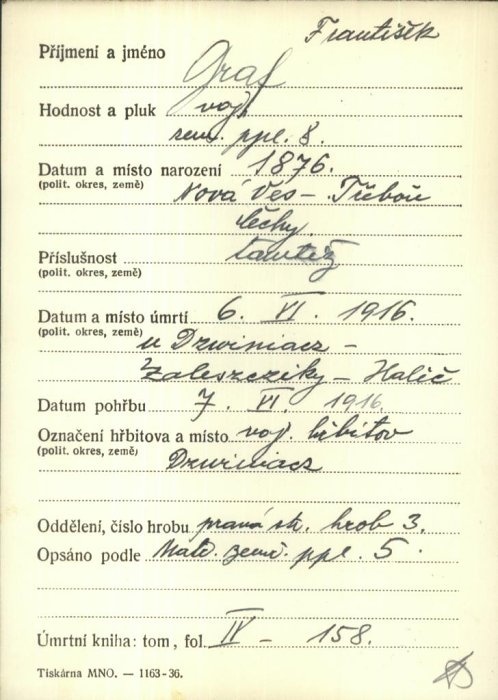 František
Příjmení a jméno Graf
Hodnost a pluk voj.
zem. ppl. 8.
Datum a místo narození 1876.
(polit. okres, země) Nová Ves – Třeboň
Čechy.
Příslušnost tamtéž
(polit. okres, země)
Datum a místo úmrtí 6. VI. 1916.
(polit. okres, země) u Dzwiniacz –
Zaleszcziky – Halič
Datum pohřbu 7. VI. 1916
Označení hřbitova a místo voj. hřbitov
(polit. okres, země) Dzwiniacz
Oddělení, číslo hrobu pravá str. hrob 3.
Opsáno podle Matr. zemř. ppl. 5.
Úmrtní kniha: tom, fol. IV – 158.
Tiskárna MNO. — 1163-36.